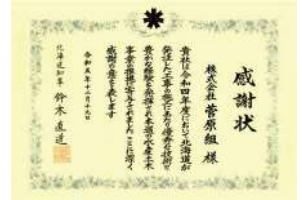 感謝状
株式会社 菅原組 様
貴社は令和四年度において北海道が
発注した工事の施工にあたり優秀な技術と
豊かな経験を発揮され本道の水産土木
事業の推進に寄与されました ここに深く
感謝の意を表します
令和五年十二月十九日
北海道知事 鈴木直道